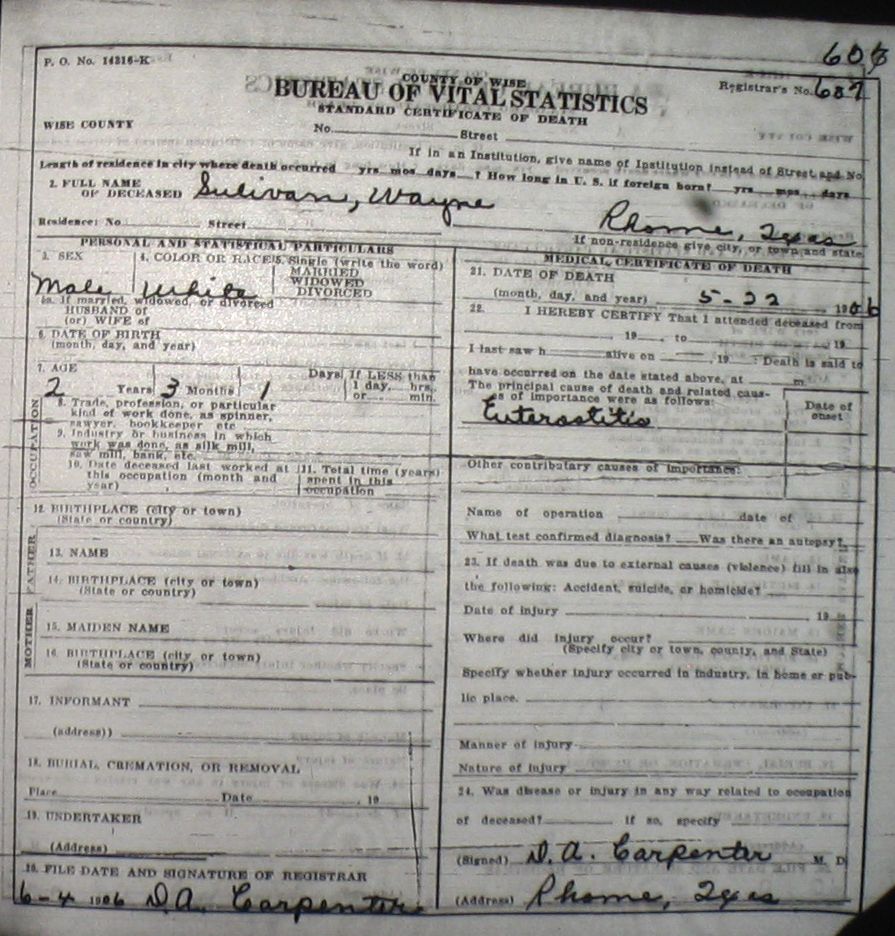 606
P. O. No. 14216-K
COUNTY OF WISE
Registrar's No. 607
BUREAU OF VITAL STATISTICS
STANDARD CERTIFICATE OF DEATH
WISE COUNTY
No. Street
If in an Institution, give name of Institution instead of Street and No.
Length of residence in city where death occurred yrs mos days ? How long in U. S. if foreign born? yrs mos days
2. FULL NAME OF DECEASED Sulivan, Wayne
Residence: No Street Rhome, Texas
If non-residence give city, or town and state
PERSONAL AND STATISTICAL PARTICULARS
3. SEX 4. COLOR OR RACE 5. Single (write the word)
MARRIED
WIDOWED
DIVORCED
Male White
5a. If married, widowed, or divorced
HUSBAND of
(or) WIFE of
6. DATE OF BIRTH
(month, day, and year)
7. AGE Days If LESS than
2 Years 3 Months 1 1 day, hrs.
or min.
OCCUPATION
8. Trade, profession, or particular
kind of work done, as spinner,
sawyer, bookkeeper etc
9. Industry or business in which
work was done, as silk mill,
saw mill, bank, etc.
10. Date deceased last worked at
this occupation (month and
year)
11. Total time (years)
spent in this
occupation
12. BIRTHPLACE (city or town)
(State or country)
FATHER
13. NAME
14. BIRTHPLACE (city or town)
(State or country)
MOTHER
15. MAIDEN NAME
16. BIRTHPLACE (city or town)
(State or country)
17. INFORMANT
(address))
18. BURIAL, CREMATION, OR REMOVAL
Place Date , 19
19. UNDERTAKER
(Address)
20. FILE DATE AND SIGNATURE OF REGISTRAR
6-4 1906 D.A. Carpenter
MEDICAL CERTIFICATE OF DEATH
21. DATE OF DEATH
(month, day, and year) 5-22 1906
22. I HEREBY CERTIFY That I attended deceased from
19 , to 19
I last saw h alive on , 19 : Death is said to
have occurred on the date stated above, at m
The principal cause of death and related caus-
es of importance were as follows:
Date of
onset
Enterostitis
Other contributory causes of importance:
Name of operation date of
What test confirmed diagnosis? Was there an autopsy?
23. If death was due to external causes (violence) fill in also
the following: Accident, suicide, or homicide?
Date of injury 19
Where did injury occur?
(Specify city or town, county, and State)
Specify whether injury occurred in industry, in home or pub-
lic place.
Manner of injury
Nature of injury
24. Was disease or injury in any way related to occupation
of deceased? if so, specify
(Signed) D. A. Carpenter M. D.
(Address) Rhome, Texas